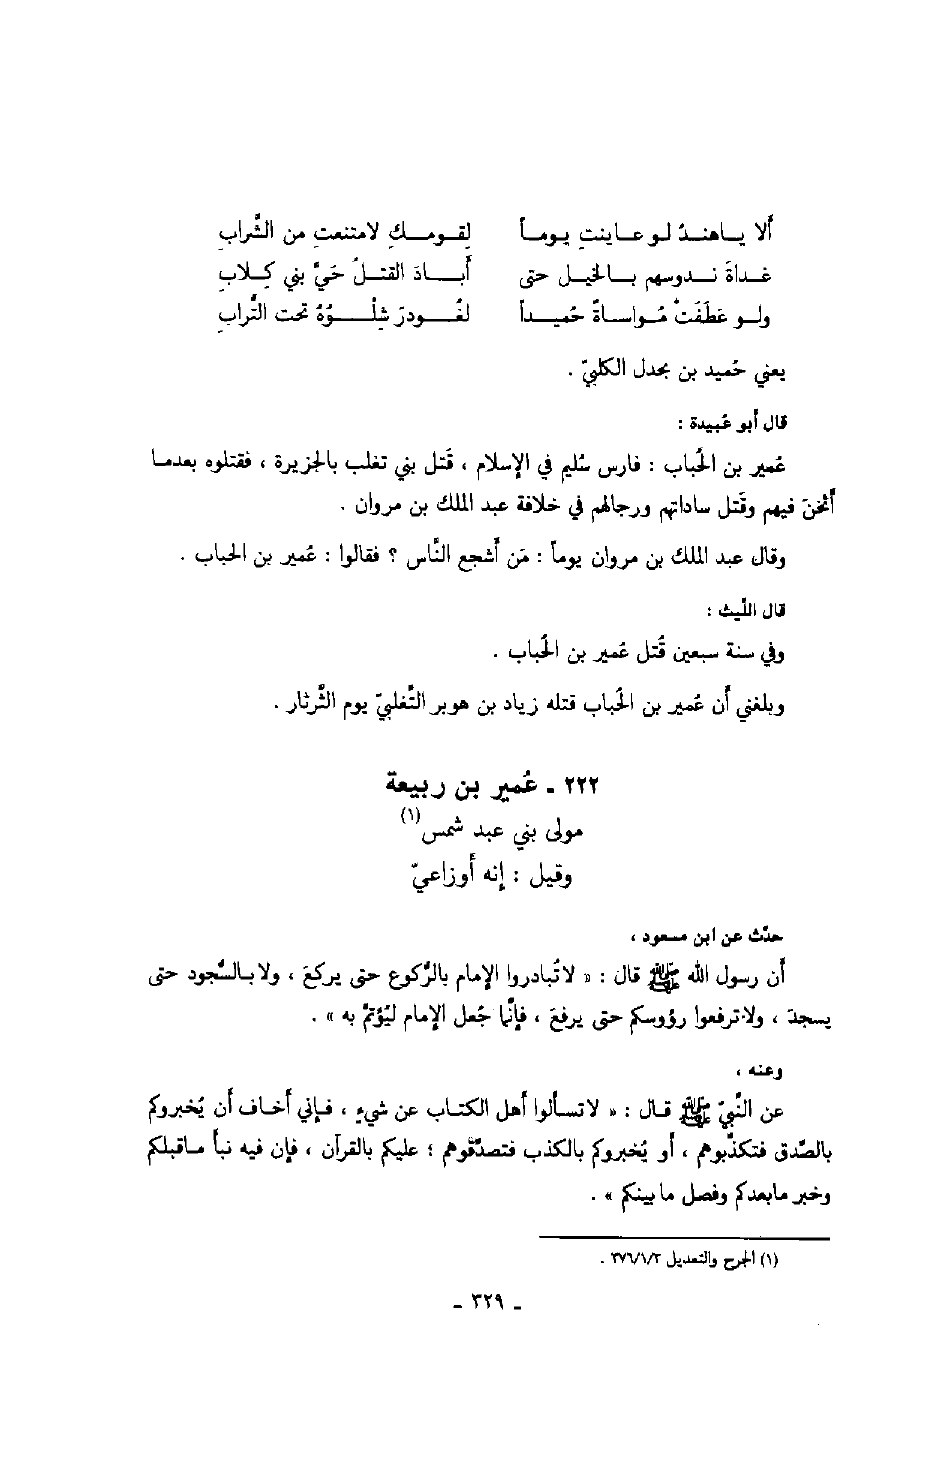 ألا يـاهنـدُ لـو عـاينتِ يـومـاً لِقـومـكِ لامتنعتِ من الشَّرابِ
غـداةَ نـدوسهم بـالخيـل حتى أبـادَ القتـلُ حَيَّ بني كِـلابِ
ولـو عَطَفَتْ مُـواسـاةً حُميـداً لغُـودرَ شِلْـوُهُ تحت التُّرابِ
يعني حُميد بن بحدل الكلبيّ .
قال أبو عُبيدة :
عُمير بن الحُباب : فارس سُليم في الإسلام ، قَتل بني تغلب بالجزيرة ، فقتلوه بعدمـا
أثخنَ فيهم وقَتل ساداتهم ورجالهم في خلافة عبد الملك بن مروان .
وقال عبد الملك بن مروان يوماً : مَن أشجع النَّاس ؟ فقالوا : عُمير بن الحباب .
قال اللَّيث :
وفي سنة سبعين قُتل عُمير بن الحُباب .
وبلغني أن عُمير بن الحُباب قتله زياد بن هوبر التَّغلبيّ يوم الثَّرثار .
٢٢٢ ـ عُمير بن ربيعة
مولى بني عبد شمس(١)
وقيل : إنه أوزاعيّ
حدَّث عن ابن مسعود ،
أن رسول الله ﷺ قال : « لاتُبادروا الإمام بالرُّكوع حتى يركعَ ، ولا بـالسُّجود حتى
يسجدَ ، ولا ترفعوا رؤوسكم حتى يرفعَ ، فإنَّما جُعل الإمام ليُؤتمَّ به » .
وعنه ،
عن النَّبيّ ﷺ قـال : « لاتسألوا أهل الكتـاب عن شيءٍ ، فـإني أخـاف أن يُخبروكم
بالصِّدق فتكذِّبوهم ، أو يُخبروكم بالكذب فتصدِّقوهم ؛ عليكم بالقرآن ، فإن فيه نبأ مـاقبلكم
وخبر مابعدكم وفصل ما بينكم » .
(١) الجرح والتعديل ٣٧٦/١/٣ .
ـ ٣٢٩ ـ